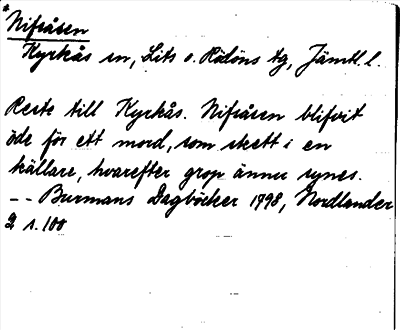 * Nifsåsen
Kyrkås sn, Lits o. Rödöns tg, Jämtl. l.
Reste till Kyrkås. Nifsåsen blifvit
öde för ett mord, som skett i en
källare, hvarefter grop ännu synes.
-- Burmans Dagböcker 1798, Nordlander
2 s. 100